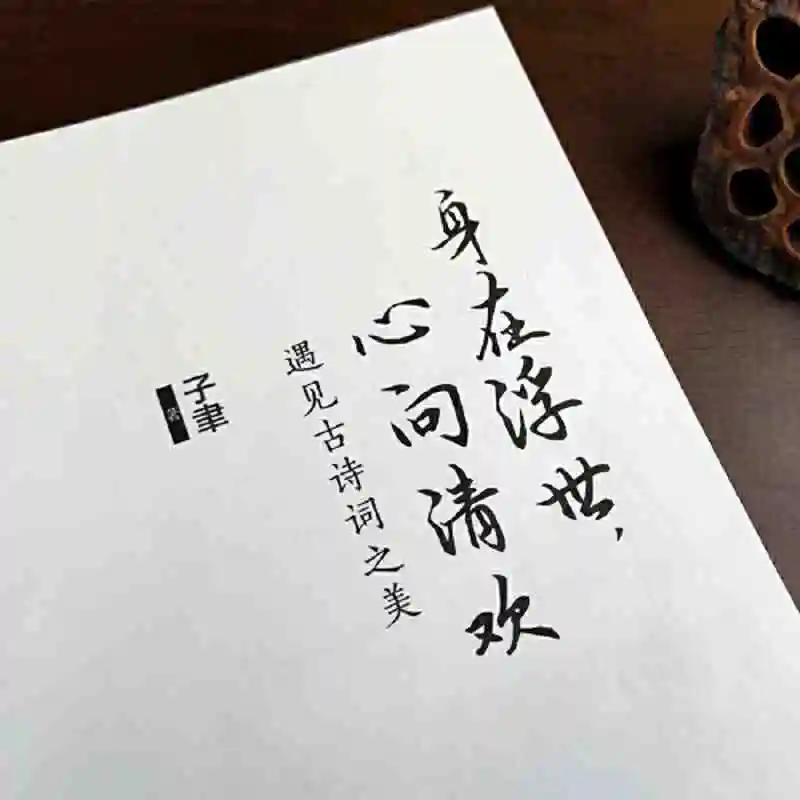 身在浮世，
心问清欢
遇见古诗词之美
子聿
著